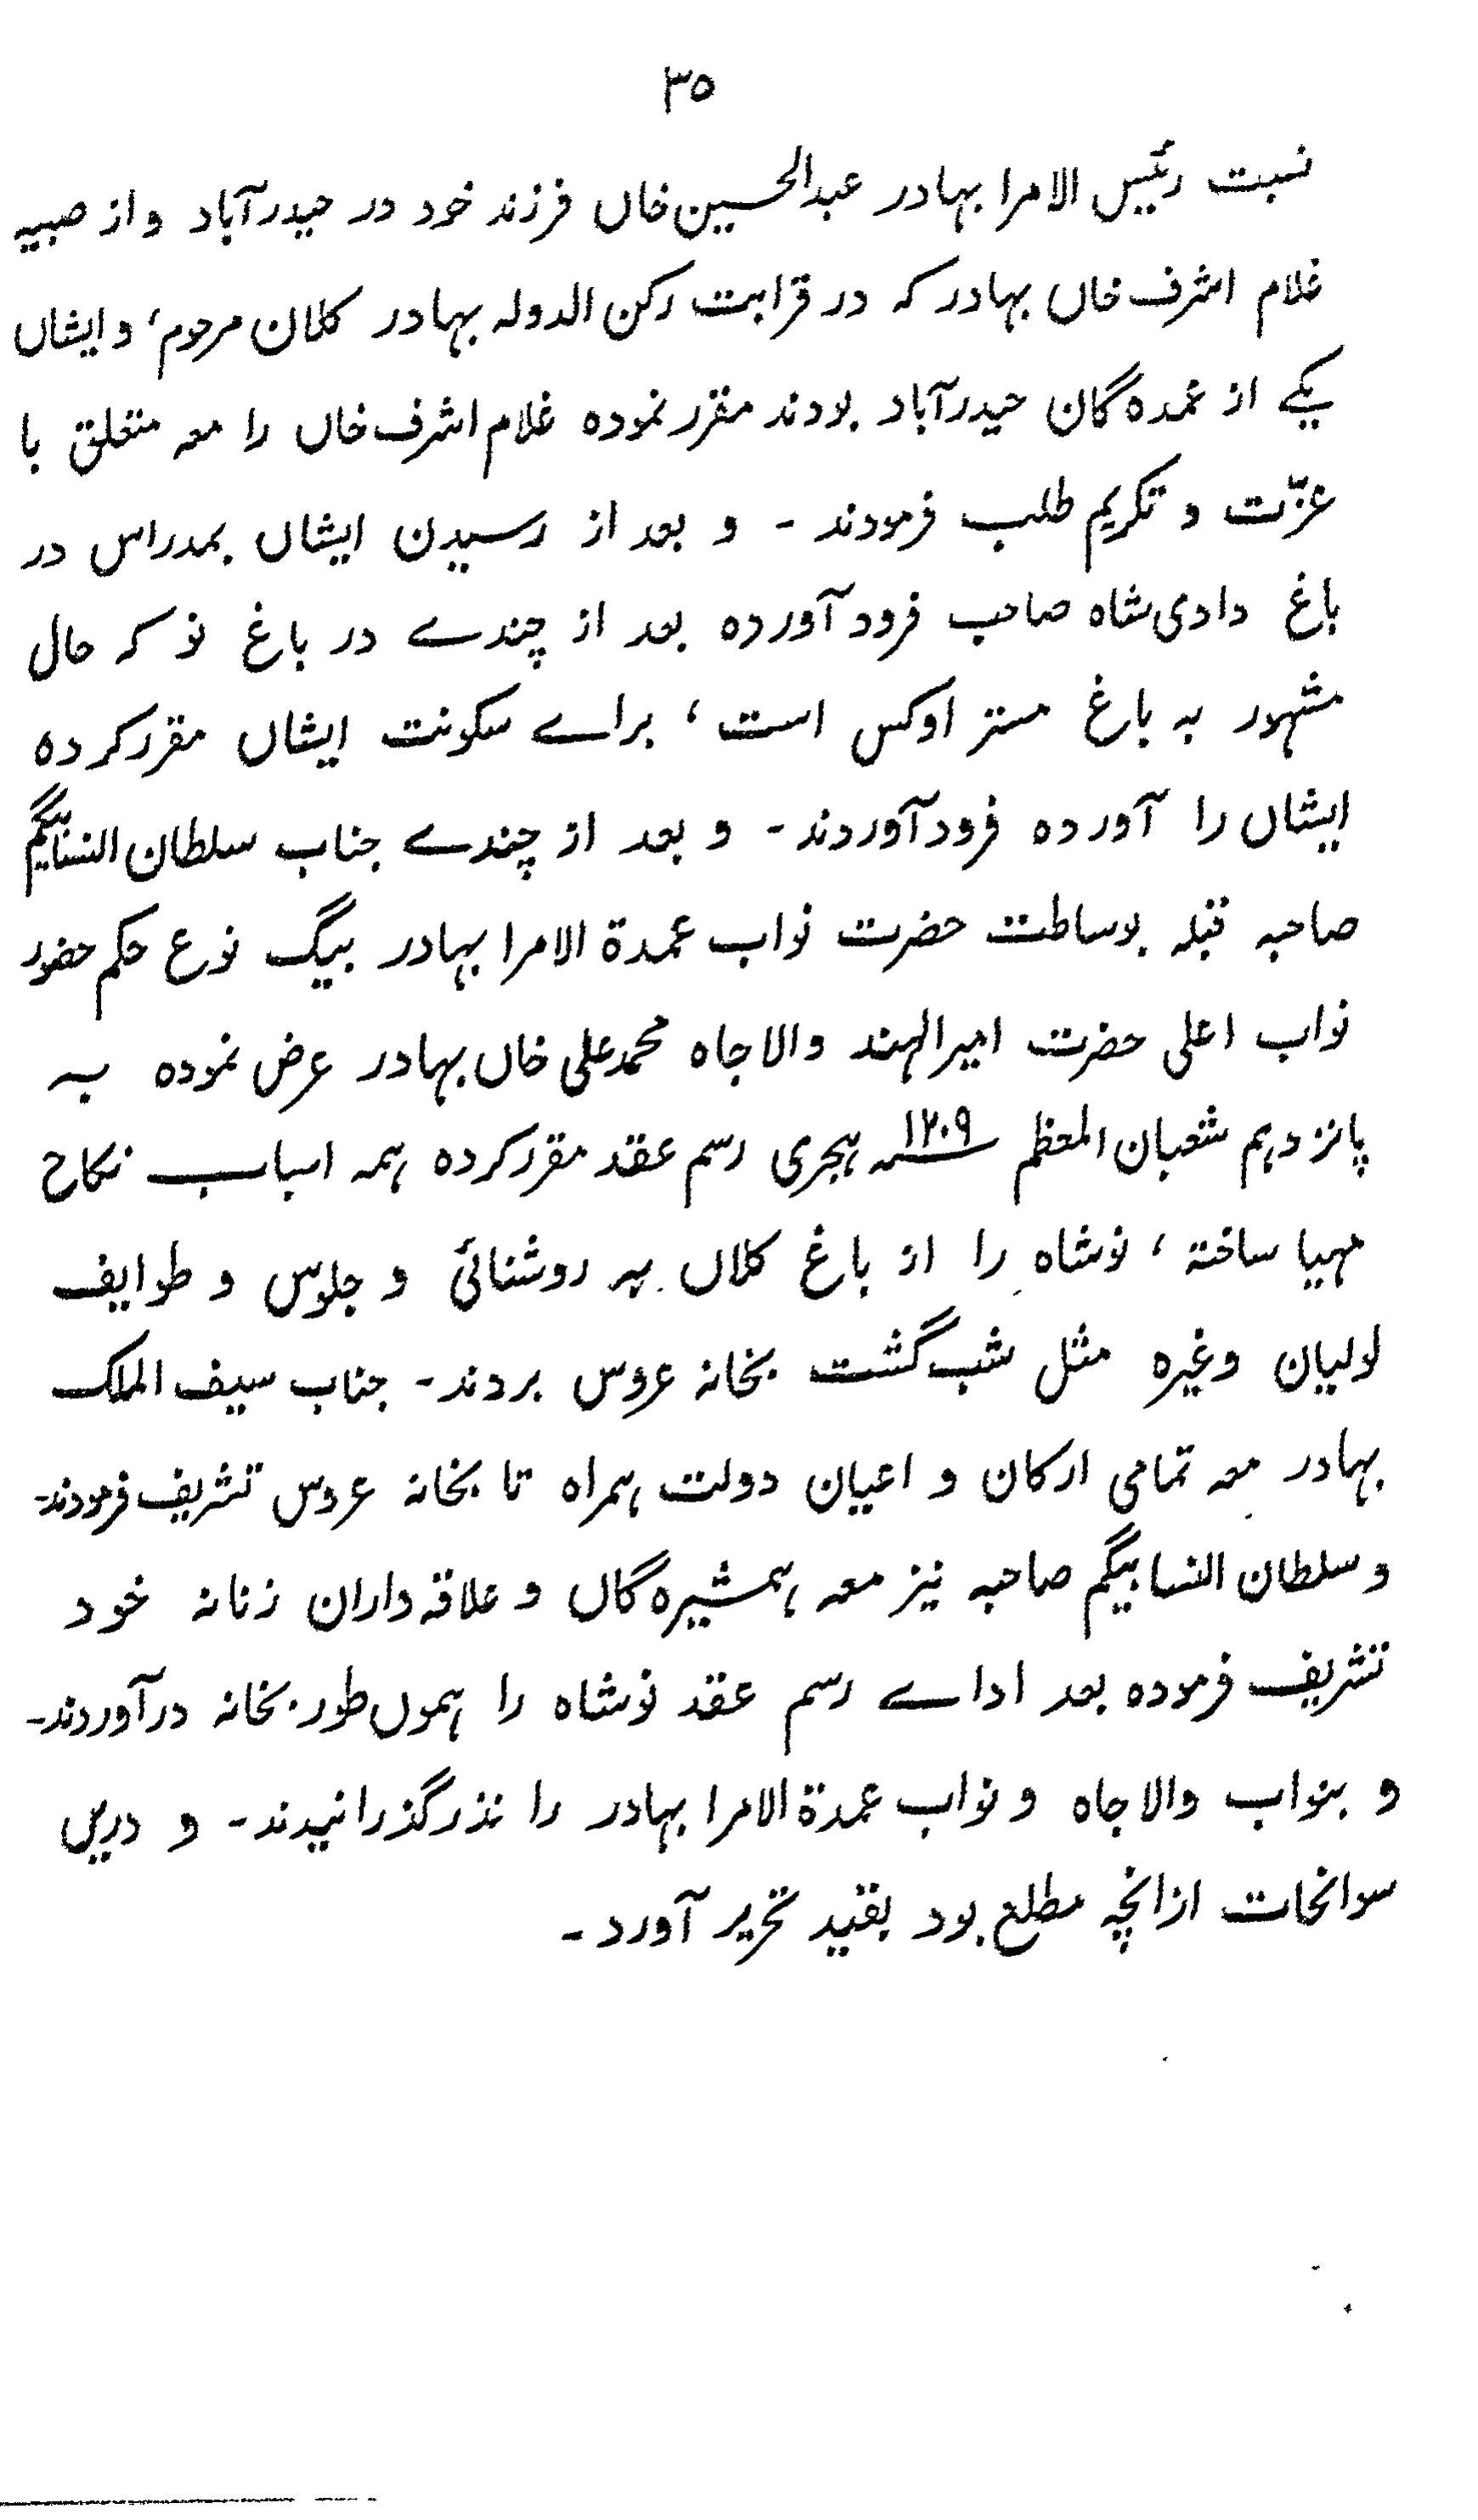 ۳۵
نسبت رئیس الامرا بہادر عبدالحسین خاں فرزند خود در حیدرآباد و از صبیہ
غلام اشرف خاں بہادر کہ در قرابت رکن الدولہ بہادر کلان مرحوم، و ایشاں
یکے از عمدہ گان حیدرآباد بودند مقرر نمودہ غلام اشرف خاں را معہ متعلق با
عزّت و تکریم طلب فرمودند۔ و بعد از رسیدن ایشاں بمدراس در
باغ دادی شاہ صاحب فرود آوردہ بعد از چندے در باغ نو کہ حال
مشہور بہ باغ مستر اوکس است، براے سکونت ایشاں مقرر کردہ
ایشاں را آوردہ فرود آوردند۔ و بعد از چندے جناب سلطان النسا بیگم
صاحبہ قبلہ بوساطت حضرت نواب عمدۃ الامرا بہادر بیگ نوع حکم حضور
نواب اعلی حضرت امیر الہند والاجاہ محمد علی خاں بہادر عرض نمودہ بہ
پانزدہم شعبان المعظم سنہ ۱۲۰۹ ہجری رسم عقد مقرر کردہ ہمہ اسباب نکاح
مہیا ساختہ، نوشاہ را از باغ کلاں بہ روشنائی و جلوس و طوایف
لولیان وغیرہ مثل شب گشت بخانہ عروس بردند۔ جناب سیف الملک
بہادر معہ تمامی ارکان و اعیان دولت ہمراہ تا بخانہ عروس تشریف فرمودند۔
و سلطان النسا بیگم صاحبہ نیز معہ ہمشیرہ گاں و علاقہ داران زنانہ خود
تشریف فرمودہ بعد اداے رسم عقد نوشاہ را ہموں طور بخانہ در آوردند۔
و بنواب والاجاہ و نواب عمدۃ الامرا بہادر را نذر گذرانیدند۔ و دریں
سوانحات ازانچہ مطلع بود بقید تحریر آورد۔